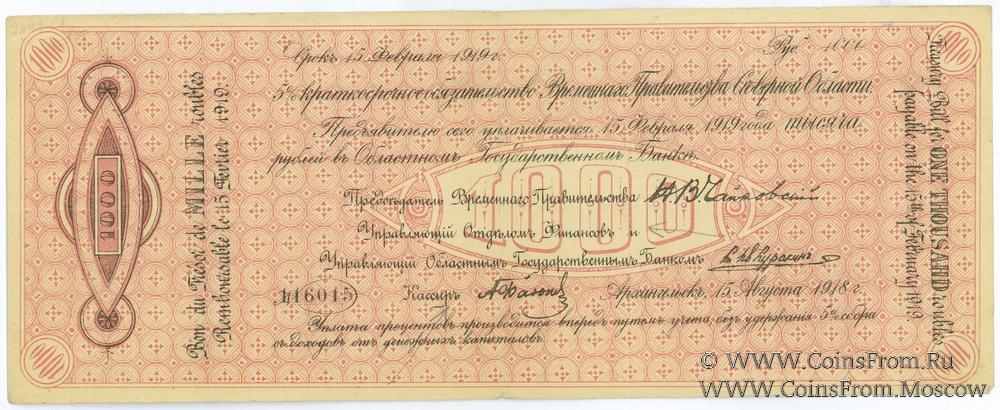 Срокъ 15 Февраля 1919 г.
Руб. 1000
5% краткосрочное обязательство Временнаго Правительства Сѣверной Области.
Предъявителю сего уплачивается 15 Февраля 1919 года тысяча
рублей въ Областномъ Государственномъ Банкѣ.
1000
Предсѣдатель Временнаго Правительства Н. В. Чайковскій
Управляющій Отдѣломъ Финансовъ и
Управляющій Областнымъ Государственнымъ Банкомъ Куракинъ
№16015
Кассиръ
Архангельскъ, 15 Августа 1918 г.
Уплата процентовъ производится впередъ путемъ учета, безъ удержания 5% сбора
съ доходовъ отъ денежныхъ капиталовъ.
1000
Bon du Trésor de MILLE roubles
Remboursable le 15 Février 1919.
Treasury Bill for ONE THOUSAND roubles
payable on the 15th of February 1919
© www.CoinsFrom.Ru
www.CoinsFrom.Moscow